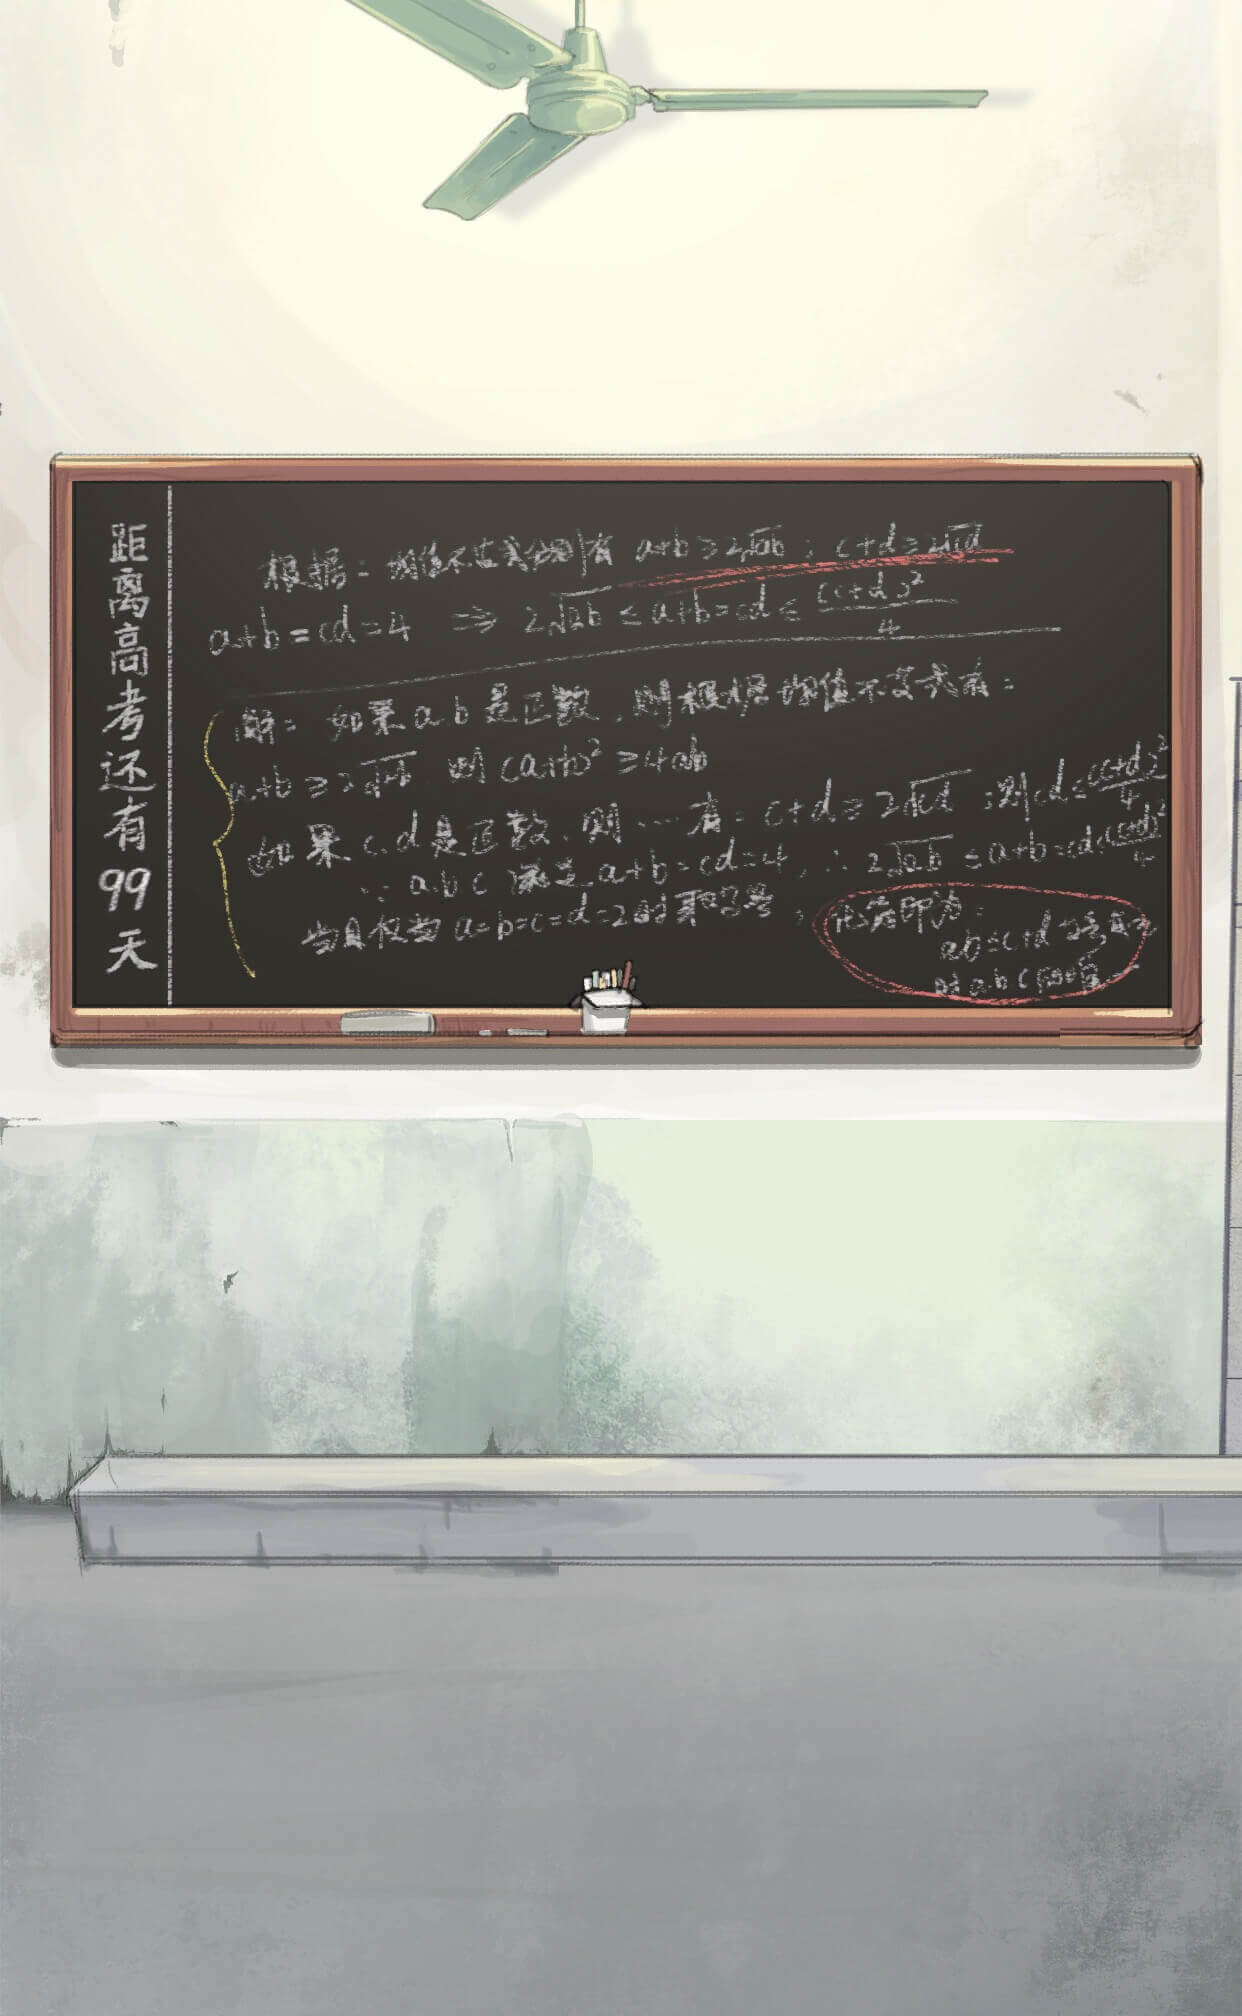 距离高考还有99天
根据：均值不等式分别有 a+b≥2√ab；c+d≥2√cd
a+b=cd=4 ⇒ 2√ab≤a+b=cd≤(c+d)²/4
解：如果a b是正数，则根据均值不等式有：
a+b≥2√ab 则(a+b)²≥4ab
如果c,d是正数，则…有：c+d≥2√cd；则cd≤(c+d)²/4
∵ a b c 满足 a+b=cd=4，∴ 2√ab≤a+b=cd≤(c+d)²/4
当且仅当 a=b=c=d=2时取等号，
化简即为：
ab≤c+d
时 a b c